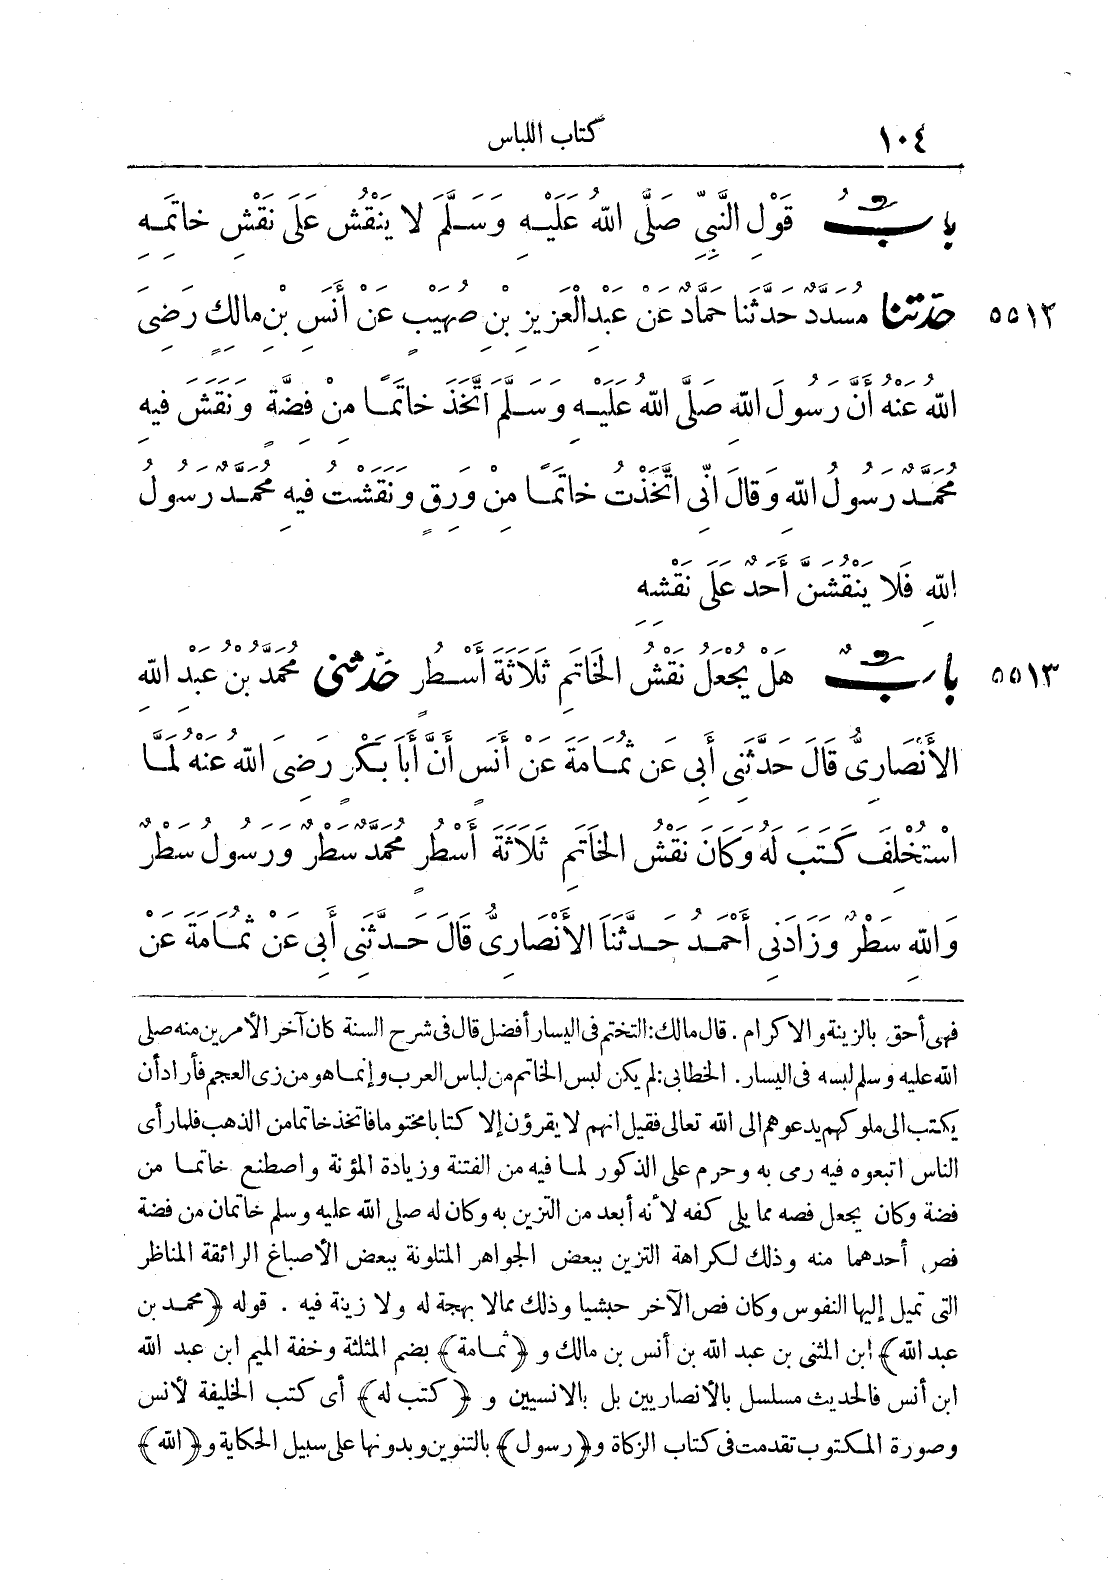 ١٠٤ كتاب اللباس
باب قَوْلِ النَّبِيِّ صَلَّى اللهُ عَلَيْهِ وَسَلَّمَ لَا يَنْقُشُ عَلَى نَقْشِ خَاتَمِهِ
٥٥١٢ حَدَّثَنَا مُسَدَّدٌ حَدَّثَنَا حَمَّادٌ عَنْ عَبْدِ الْعَزِيزِ بْنِ صُهَيْبٍ عَنْ أَنَسِ بْنِ مَالِكٍ رَضِيَ
اللهُ عَنْهُ أَنَّ رَسُولَ اللهِ صَلَّى اللهُ عَلَيْهِ وَسَلَّمَ اتَّخَذَ خَاتَمًا مِنْ فِضَّةٍ وَنَقَشَ فِيهِ
مُحَمَّدٌ رَسُولُ اللهِ وَقَالَ إِنِّي اتَّخَذْتُ خَاتَمًا مِنْ وَرِقٍ وَنَقَشْتُ فِيهِ مُحَمَّدٌ رَسُولُ
اللهِ فَلَا يَنْقُشَنَّ أَحَدٌ عَلَى نَقْشِهِ
٥٥١٣ بابٌ هَلْ يُجْعَلُ نَقْشُ الْخَاتَمِ ثَلَاثَةَ أَسْطُرٍ حَدَّثَنِي مُحَمَّدُ بْنُ عَبْدِ اللهِ
الْأَنْصَارِيُّ قَالَ حَدَّثَنِي أَبِي عَنْ ثُمَامَةَ عَنْ أَنَسٍ أَنَّ أَبَا بَكْرٍ رَضِيَ اللهُ عَنْهُ لَمَّا
اسْتُخْلِفَ كَتَبَ لَهُ وَكَانَ نَقْشُ الْخَاتَمِ ثَلَاثَةَ أَسْطُرٍ مُحَمَّدٌ سَطْرٌ وَرَسُولُ سَطْرٌ
وَاللهِ سَطْرٌ وَزَادَنِي أَحْمَدُ حَدَّثَنَا الْأَنْصَارِيُّ قَالَ حَدَّثَنِي أَبِي عَنْ ثُمَامَةَ عَنْ
فهى أحق بالزينة والاكرام . قال مالك: التختم فى اليسار أفضل قال فى شرح السنة كان آخر الأمرين منه صلى
الله عليه وسلم لبسه فى اليسار. الخطابى: لم يكن لبس الخاتم من لباس العرب وإنما هو من زى العجم فأراد أن
يكتب الى ملوكهم يدعوهم الى الله تعالى فقيل انهم لا يقرؤن إلا كتابا مختوما فاتخذ خاتما من الذهب فلما رأى
الناس اتبعوه فيه رمى به وحرم على الذكور لما فيه من الفتنة وزيادة المؤنة واصطنع خاتما من
فضة وكان يجعل فصه مما يلى كفه لأنه أبعد من التزين به وكان له صلى الله عليه وسلم خاتمان من فضة
فص أحدهما منه وذلك لكراهة التزين ببعض الجواهر المتلونة ببعض الأصباغ الرائقة المناظر
التى تميل إليها النفوس وكان فص الآخر حبشيا وذلك ممالا بهجة له ولا زينة فيه . قوله ﴿محمد بن
عبد الله﴾ ابن المثنى بن عبد الله بن أنس بن مالك و ﴿ثمامة﴾ بضم المثلثة وخفة الميم ابن عبد الله
ابن أنس فالحديث مسلسل بالأنصاريين بل بالانسيين و ﴿كتب له﴾ أى كتب الخليفة لأنس
وصورة المكتوب تقدمت فى كتاب الزكاة و﴿رسول﴾ بالتنوين وبدونها على سبيل الحكاية و﴿الله﴾